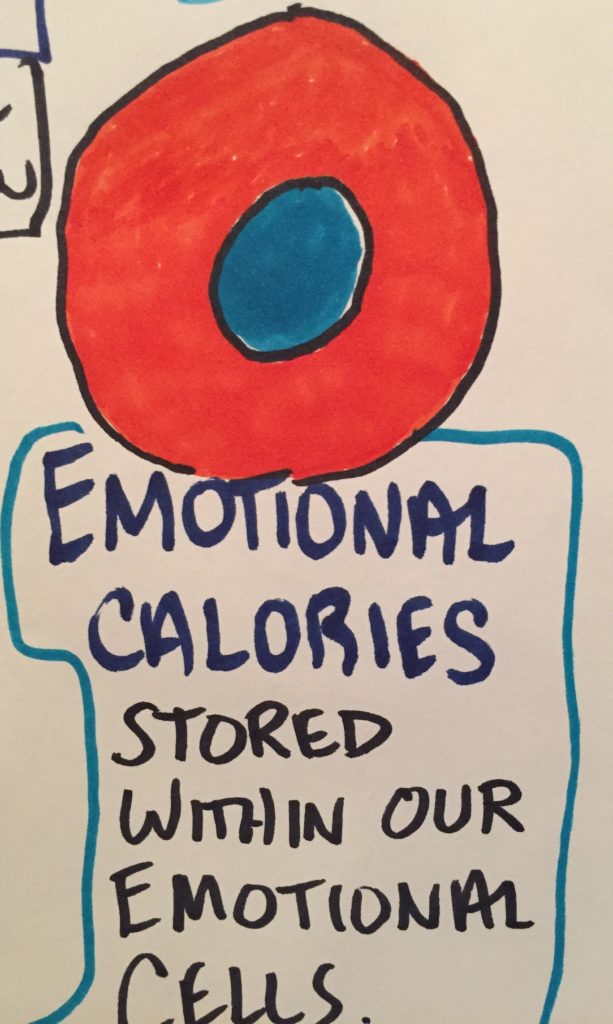 EMOTIONAL
CALORIES
STORED
WITHIN OUR
EMOTIONAL
CELLS.